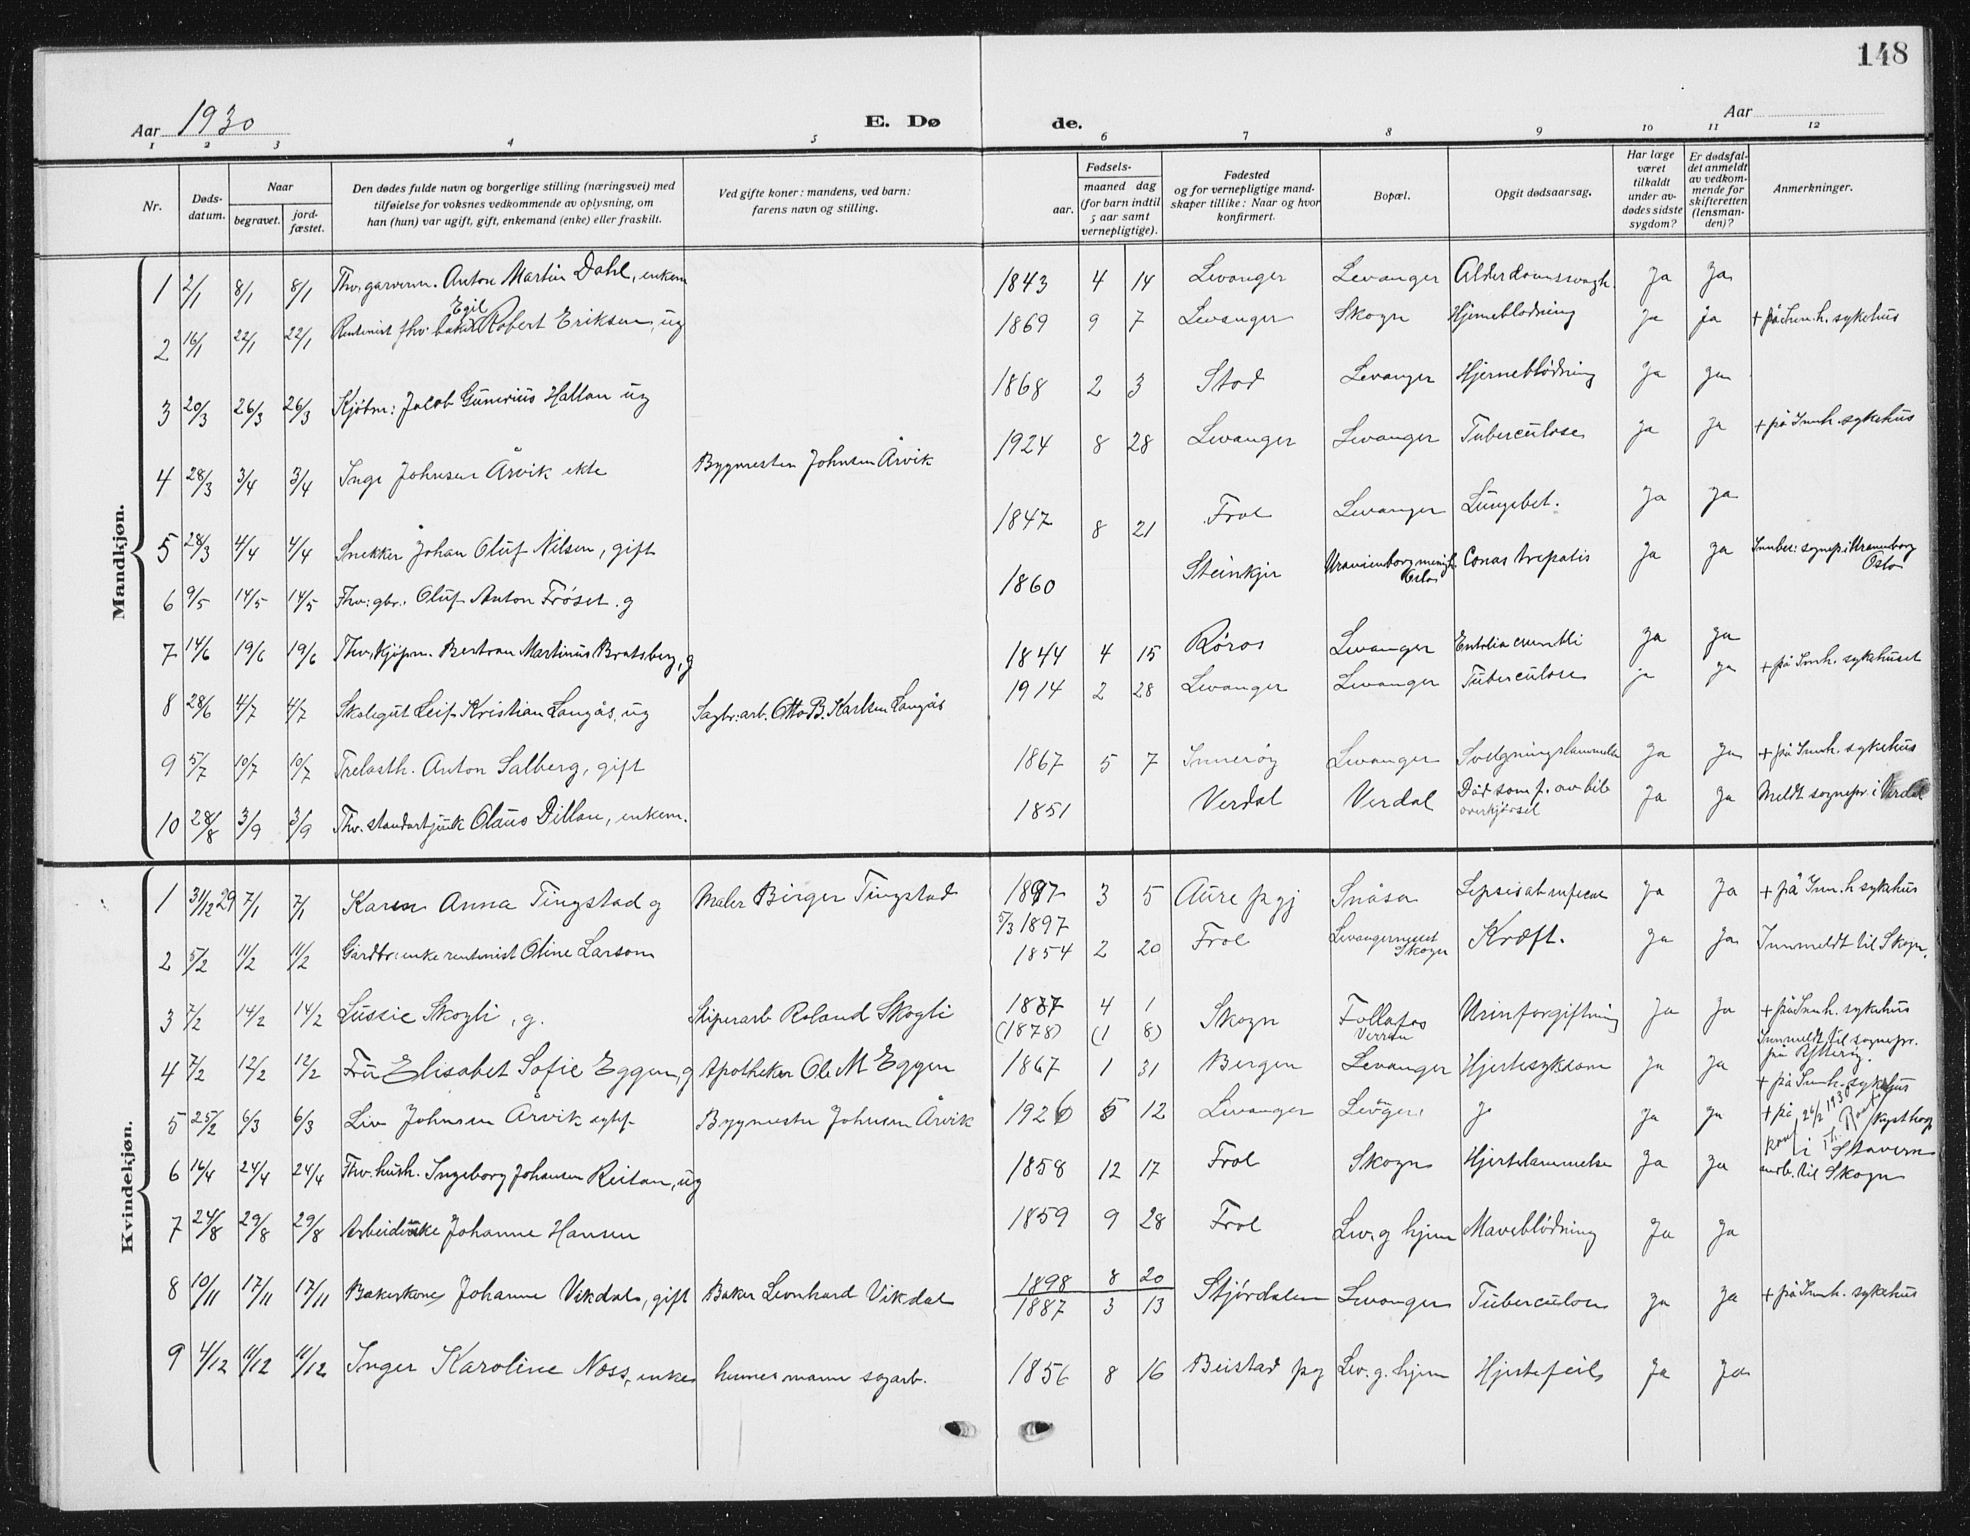 148
Aar 1930
E. Dø
de.
Aar
1 2 3 4 5 6 7 8 9 10 11 12
Nr.
Døds-
datum.
Naar
begravet.
jord-
fæstet.
Den dødes fulde navn og borgerlige stilling (næringsvei) med
tilføielse for voksnes vedkommende av oplysning, om
han (hun) var ugift, gift, enkemand (enke) eller fraskilt.
Ved gifte koner: mandens, ved barn:
farens navn og stilling.
Fødsels-
aar.
maaned dag
(for barn indtil
5 aar samt
vernepligtige).
Fødested
og for vernepligtige mand-
skaper tillike: Naar og hvor
konfirmert.
Bopæl.
Opgit dødsaarsag.
Har læge
været
tilkaldt
under av-
dødes sidste
sygdom?
Er dødsfal-
det anmeldt
av vedkom-
mende for
skifteretten
(lensman-
den)?
Anmerkninger.
Mandkjøn.
1 2/1 8/1 8/1 Thv. garverm. Anton Martin Dahl, enkem 1843 4 14 Levanger Levanger Alderdomssvagh. Ja Ja
Egil
2 16/1 22/1 22/1 Rentenist fhv. baker Robert Eriksen, ug 1869 9 7 Levanger Skogn Hjerneblødning Ja ja + på Inn.h. sykehus
3 20/3 26/3 26/3 Kjøbm: Jacob Gunerius Hallan ug 1868 2 3 Stod Levanger Hjerneblødning Ja ja
4 28/3 3/4 3/4 Inge Johnsen Årvik ekte Bygmester Johnsen Årvik 1924 8 28 Levanger Levanger Tuberculose Ja Ja + på Innh. sykehus
5 28/3 4/4 4/4 Snekker Johan Oluf Nilsen, gift 1847 8 21 Frol Levanger Lungebet. Ja Ja
6 9/5 14/5 14/5 Fhv: gbr. Oluf Anton Frøset g 1860 Steinkjer Uranienborg menigh Oslo Ja Ja Oslo
7 14/6 19/6 19/6 Fhv. kjøpm. Bertran Martinus Bratsberg, g 1844 4 15 Røros Levanger Ja Ja
8 28/6 4/7 4/7 Skolegut Leif Kristian Langås, ug Sagbr: arb. Otto B. Karlsen Langås 1914 2 28 Levanger Levanger Tuberculose ja ja + på Innh. sykehuset
9 5/7 10/7 10/7 Trelasth. Anton Salberg, gift 1867 5 7 Innerøy Levanger Svelgningslammelse Ja Ja + på Innh. sykehus
10 28/8 3/9 3/9 Fhv. standartjunk Olaus Dillan, enkem. 1851 Verdal Verdal Død som f. av bil Ja Ja Meldt sognepr. i Verdal
overkjørsel
Kvindekjøn.
1 31/12 29 7/1 7/1 Karen Anna Tingstad g Maler Birger Tingstad 1897 3 5 Aure pgj Snåsa Ja Ja + på Inn.h sykehus
5/3 1897
2 5/2 11/2 11/2 Gårdbr: enke rentenist Oline Larsen 1854 2 20 Frol Levangernesset Skogn Kræft. Ja Ja Innmeldt til Skogn.
3 7/2 14/2 14/2 Lussie Skogli, g. Sliperarb Roland Skogli 1877 4 1 Skogn Follafos Urinforgiftning Ja Ja + på Innh. sykehus
(1878) (1 8) Verran Innmeldt til sognepr.
4 7/2 12/2 12/2 Fru Elisabet Sofie Eggen, g Apotheker Ole M Eggen 1867 1 31 Bergen Levanger Hjertesykdom Ja Ja
+ på Innh. sykehus
5 25/2 6/3 6/3 Liv Johnsen Årvik Bygmester Johnsen Årvik 1926 5 12 Levanger Ja ja + på kysthosp
i Stavern
6 16/4 24/4 24/4 Fhv. hush. Ingeborg Johansen Reitan, ug 1858 12 17 Frol Skogn Hjertelammelse Ja Ja til Skogn
7 24/8 29/8 29/8 Arbeiderenke Johanne Hansen 1859 9 28 Frol Lev. g hjem Maveblødning Ja Ja
8 10/11 17/11 17/11 Bakerkone Johanne Vikdal, gift Baker Leonhard Vikdal 1898 8 20 Stjørdalen Levanger Tuberculose Ja Ja + på Innh. sykehus
1887 3 13
9 4/12 11/12 11/12 Inger Karoline Noss, enke hennes mann sagarb. 1856 8 16 Beistad pg Lev. g. hjem Hjertefeil Ja Ja